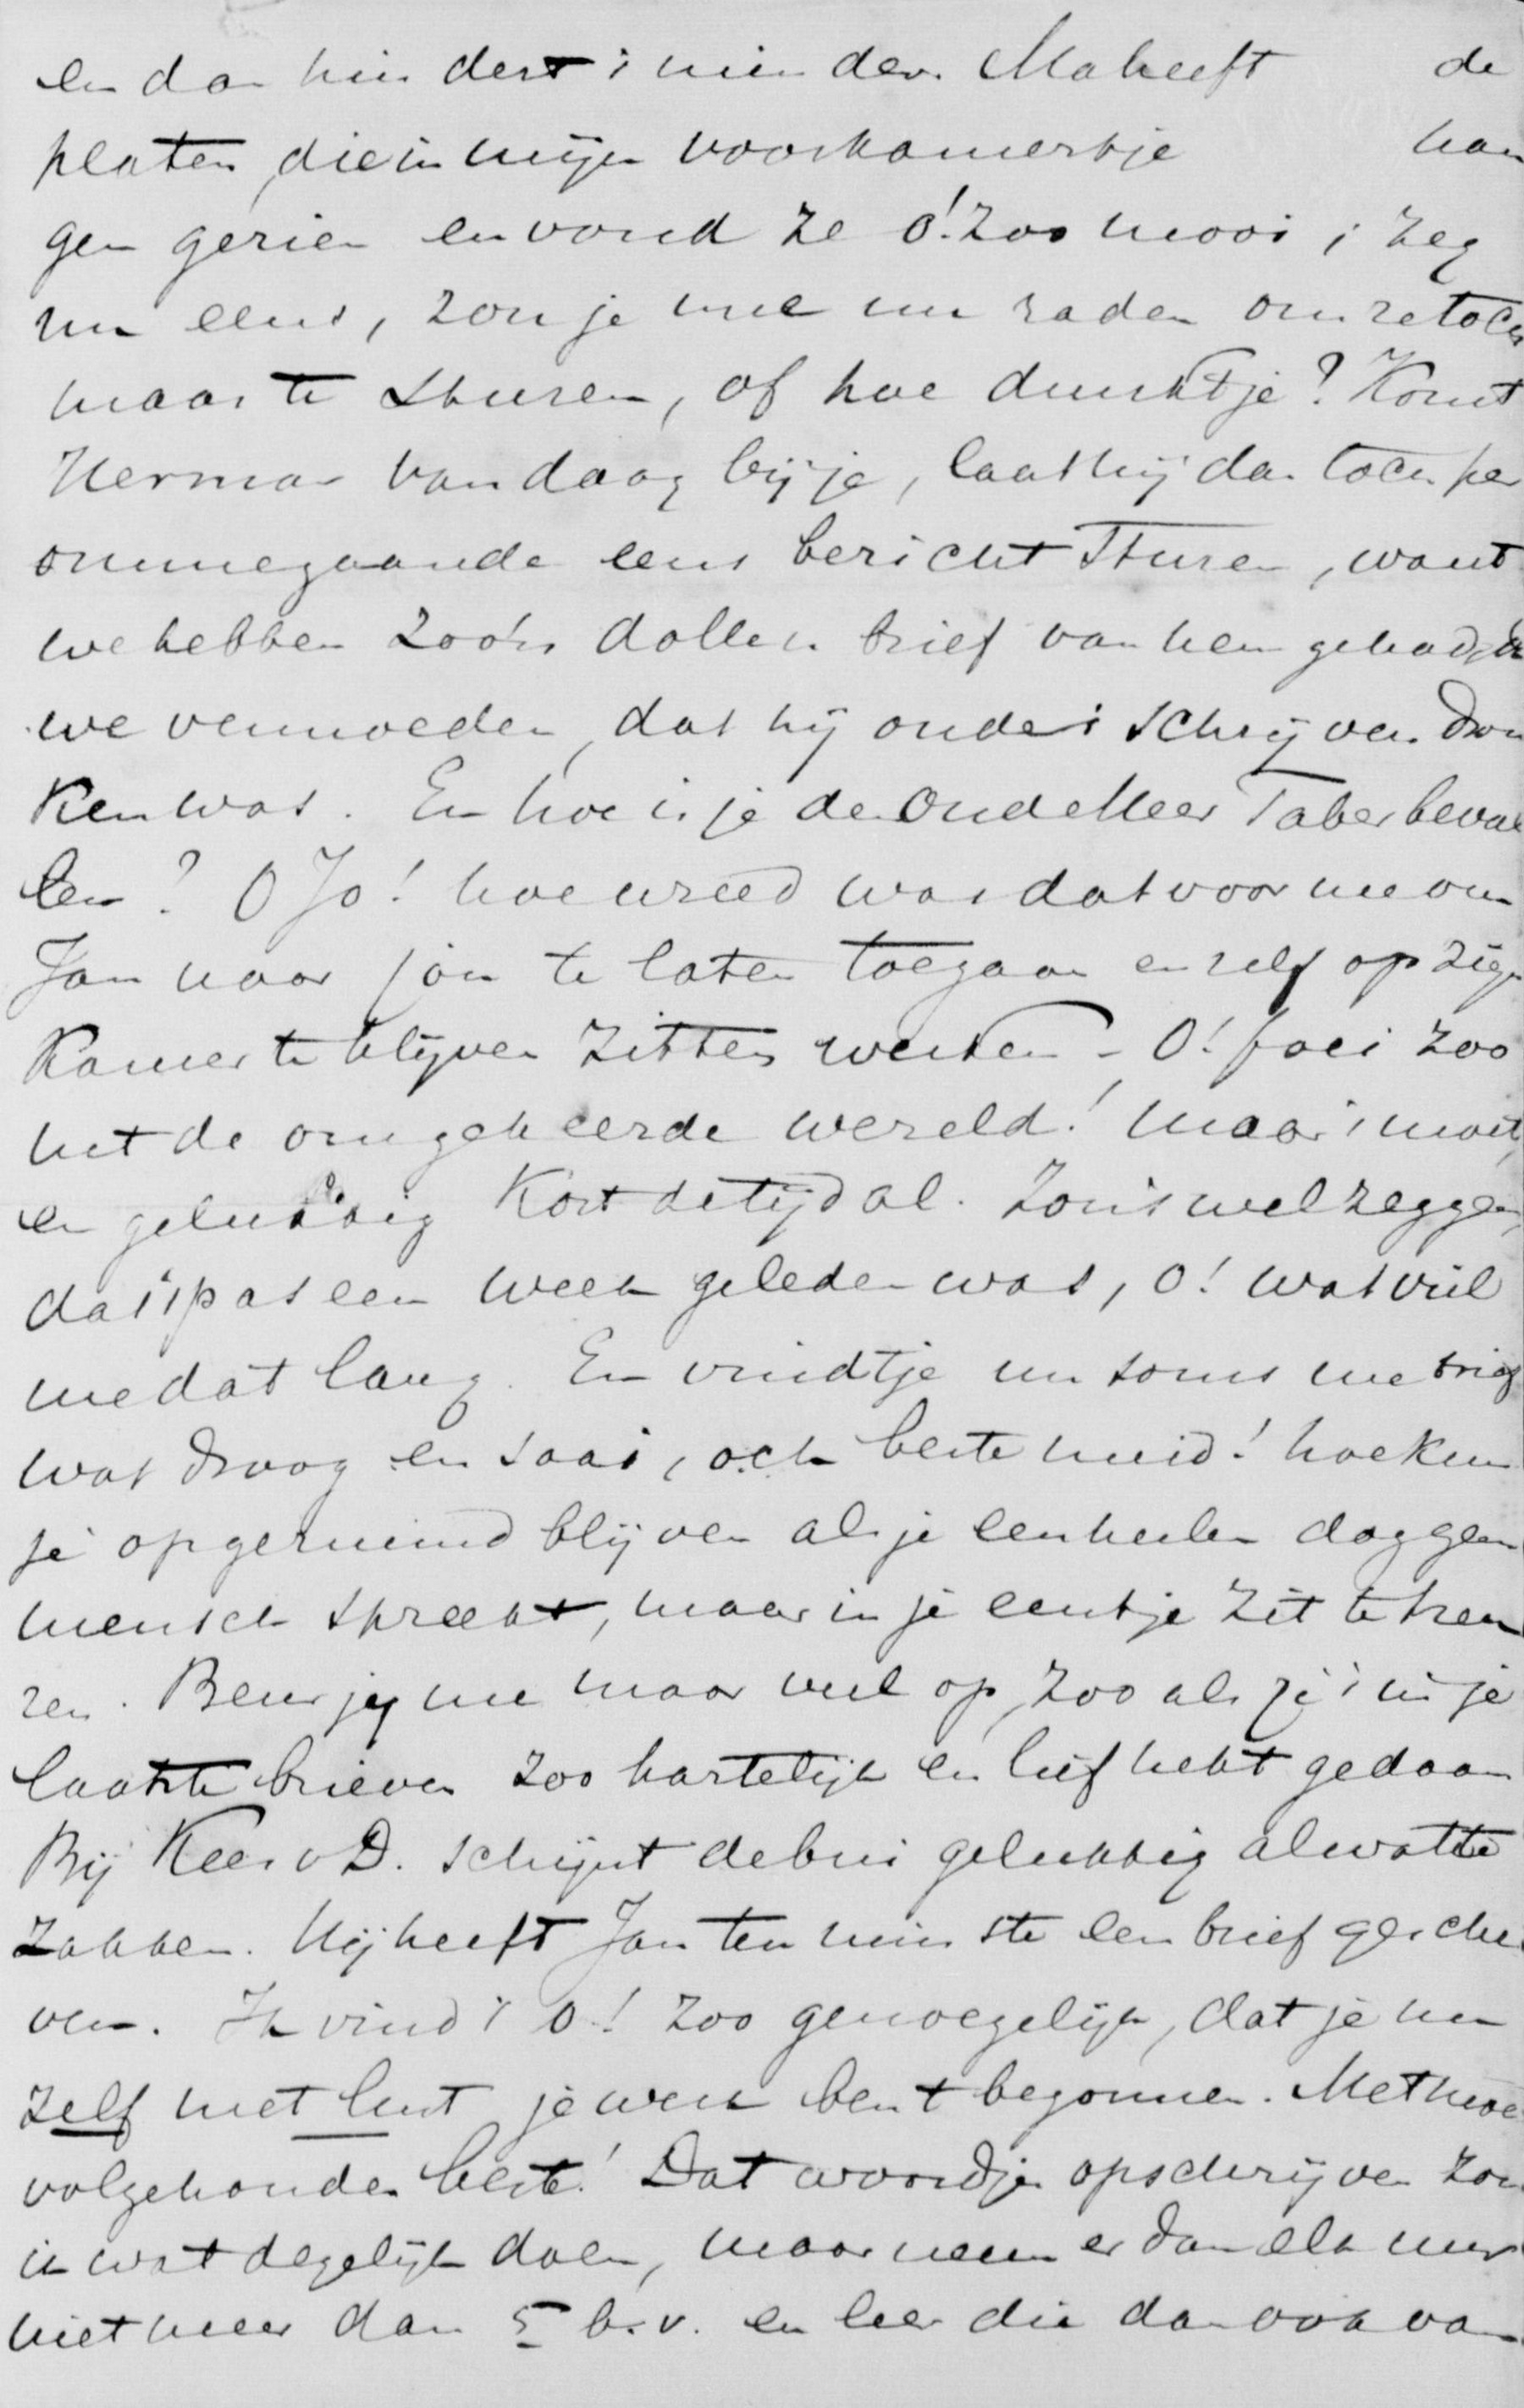 en dan hindert 't minder. Ma heeft de
platen, die in mijn voorkamertje han
gen gezien en vond ze o! zoo mooi; zeg
nu eens, zou je me nu raden om ze toch
maar te sturen, of hoe dunkt je? Komt
Herman vandaag bij je, laat hij dan toch per
ommegaande eens bericht sturen, want
we hebben zoo'n dollen brief van hem gehad, dat
we vermoeden, dat hij onder 't schrijven dron
ken was. En hoe is je de Oude Heer Taber beval
len? O Jo! hoe wreed was dat voor me om
Jan naar jou te laten toegaan en zelf op zijn
kamer te blijven zitten werken - O! foei zoo
net de omgekeerde wereld! Maar 't moet,
en gelukkig kort de tijd al. Zou 't wel zeggen,
dat 't pas een week geleden was, o! wat viel
me dat lang. En vindt je nu soms me brief
wat droog en saai, och beste meid! hoe kun
je opgeruimd blijven als je een heelen dag geen
mensch spreekt, maar in je eentje zit te treu
ren. Beur jij me maar veel op, zoo als je 't in je
laatste brieven zoo hartelijk en lief hebt gedaan
Bij Kees v D. schijnt de bui gelukkig al wat te
zakken. Hij heeft Jan ten minste een brief geschre
ven. Ik vind 't o! zoo genoegelijk, dat je nu
zelf met lust je werk bent begonnen. Met moed
volgehouden beste! Dat woordjes opschrijven zou
ik wat degelijk doen, maar neem er dan elk uur
niet meer dan 5 b.v. en leer die dan ook van